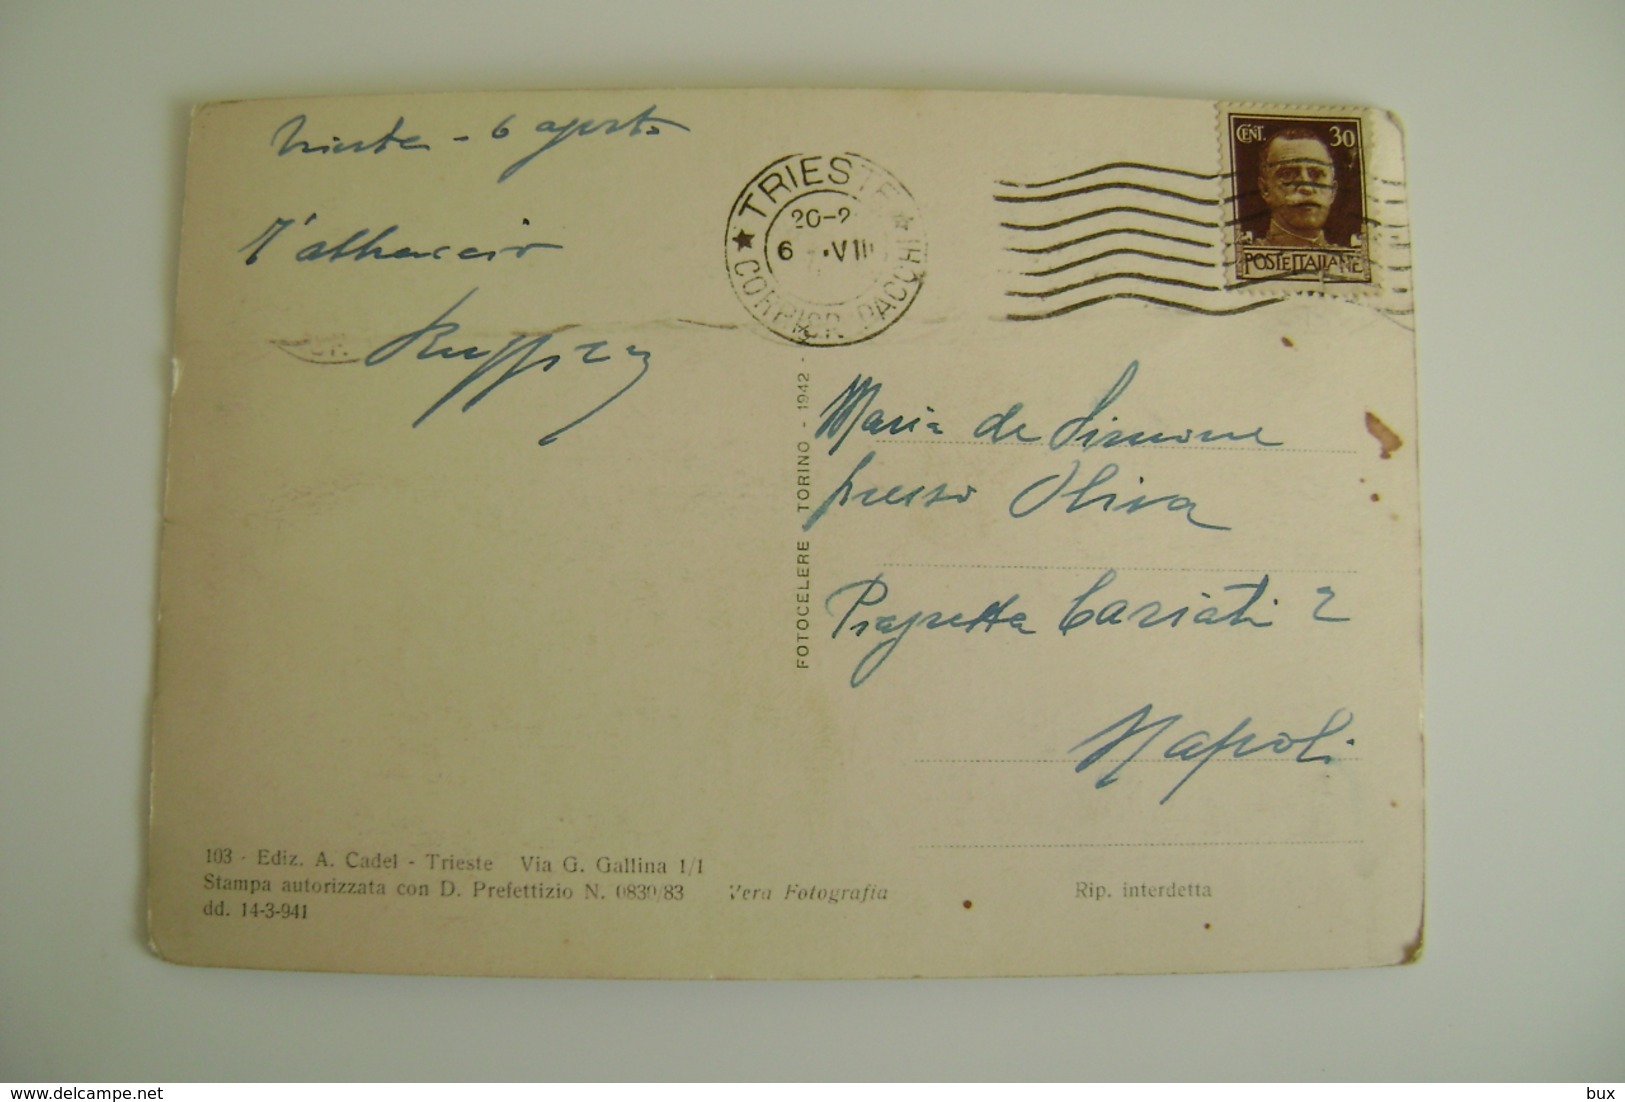 Trieste - 6 agosto
T'abbraccio
CENT. 30
POSTE ITALIANE
TRIESTE
20-2
6 VIII
CORR. PACCHI
Maria de Simone
presso Oliva
Piazzetta Cariati 2
Napoli
FOTOCELERE TORINO - 1942 -
103 - Ediz. A. Cadel - Trieste Via G. Gallina 1/1
Stampa autorizzata con D. Prefettizio N. 0830/83
dd. 14-3-941
Vera Fotografia
Rip. interdetta
delcampe.net
bux